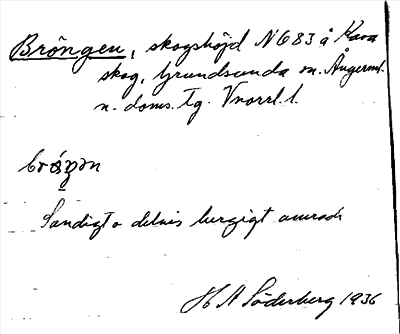 Bröngen, skogshöjd NG 83 å Kava
skog, Grundsunda sn. Ångerml.
n. doms. Tg. Vnorrl. l.
Sandigt o delvis bergigt område
H A Söderberg 1936